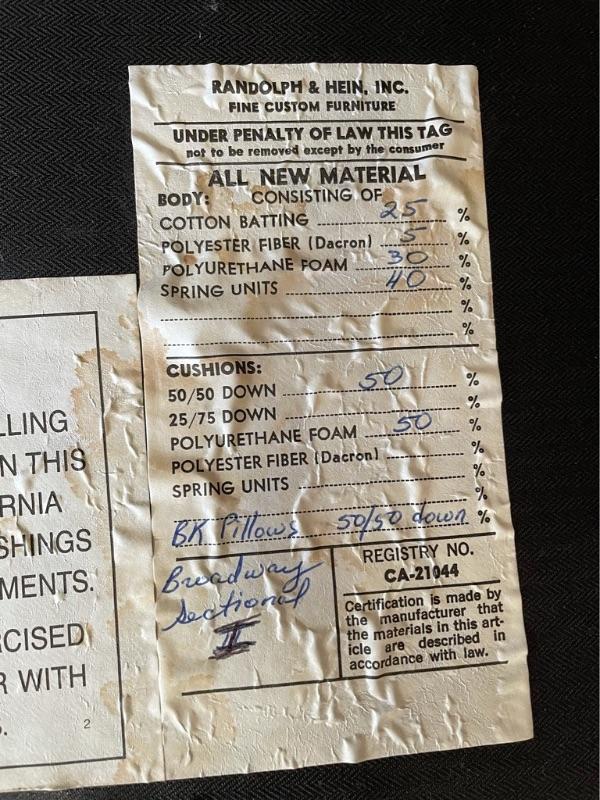 RANDOLPH & HEIN, INC.
FINE CUSTOM FURNITURE
UNDER PENALTY OF LAW THIS TAG
not to be removed except by the consumer
ALL NEW MATERIAL
BODY: CONSISTING OF
COTTON BATTING 25 %
POLYESTER FIBER (Dacron) 5 %
POLYURETHANE FOAM 30 %
SPRING UNITS 40 %
%
%
CUSHIONS:
50/50 DOWN 50 %
25/75 DOWN %
POLYURETHANE FOAM 50 %
POLYESTER FIBER (Dacron) %
SPRING UNITS %
%
BK Pillows 50/50 down %
Broadway
Sectional
II
REGISTRY NO.
CA-21044
Certification is made by
the manufacturer that
the materials in this art-
icle are described in
accordance with law.
LLING
N THIS
RNIA
SHINGS
MENTS.
RCISED
R WITH
.
2